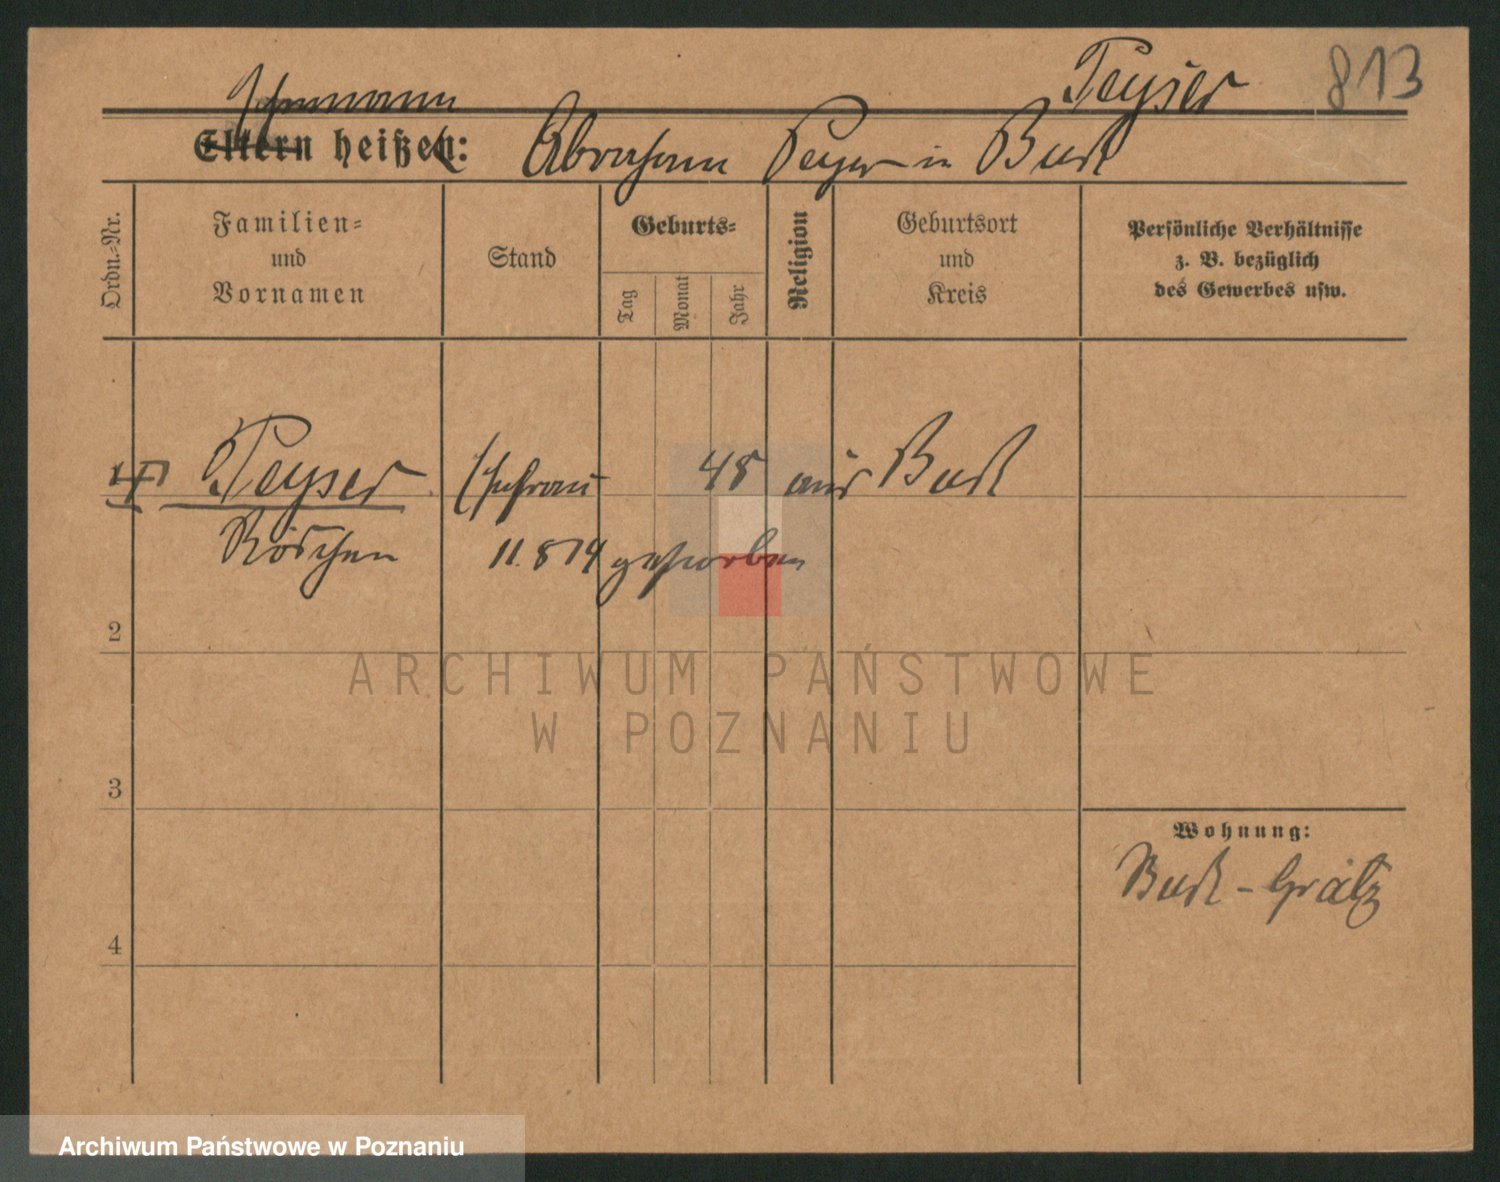 Peyser 813
Ehemann
Eltern heißen: Abraham Peyser in Buk
Ordn.-Nr.
Familien-
und
Vornamen
Stand
Geburts-
Tag
Monat
Jahr
Religion
Geburtsort
und
Kreis
Persönliche Verhältnisse
z. B. bezüglich
des Gewerbes usw.
Peyser Ehefrau 48 aus Buk
Röschen 11.8 74 gestorben
2
3
4
Wohnung:
Buk - Grätz
ARCHIWUM PAŃSTWOWE
W POZNANIU
Archiwum Państwowe w Poznaniu